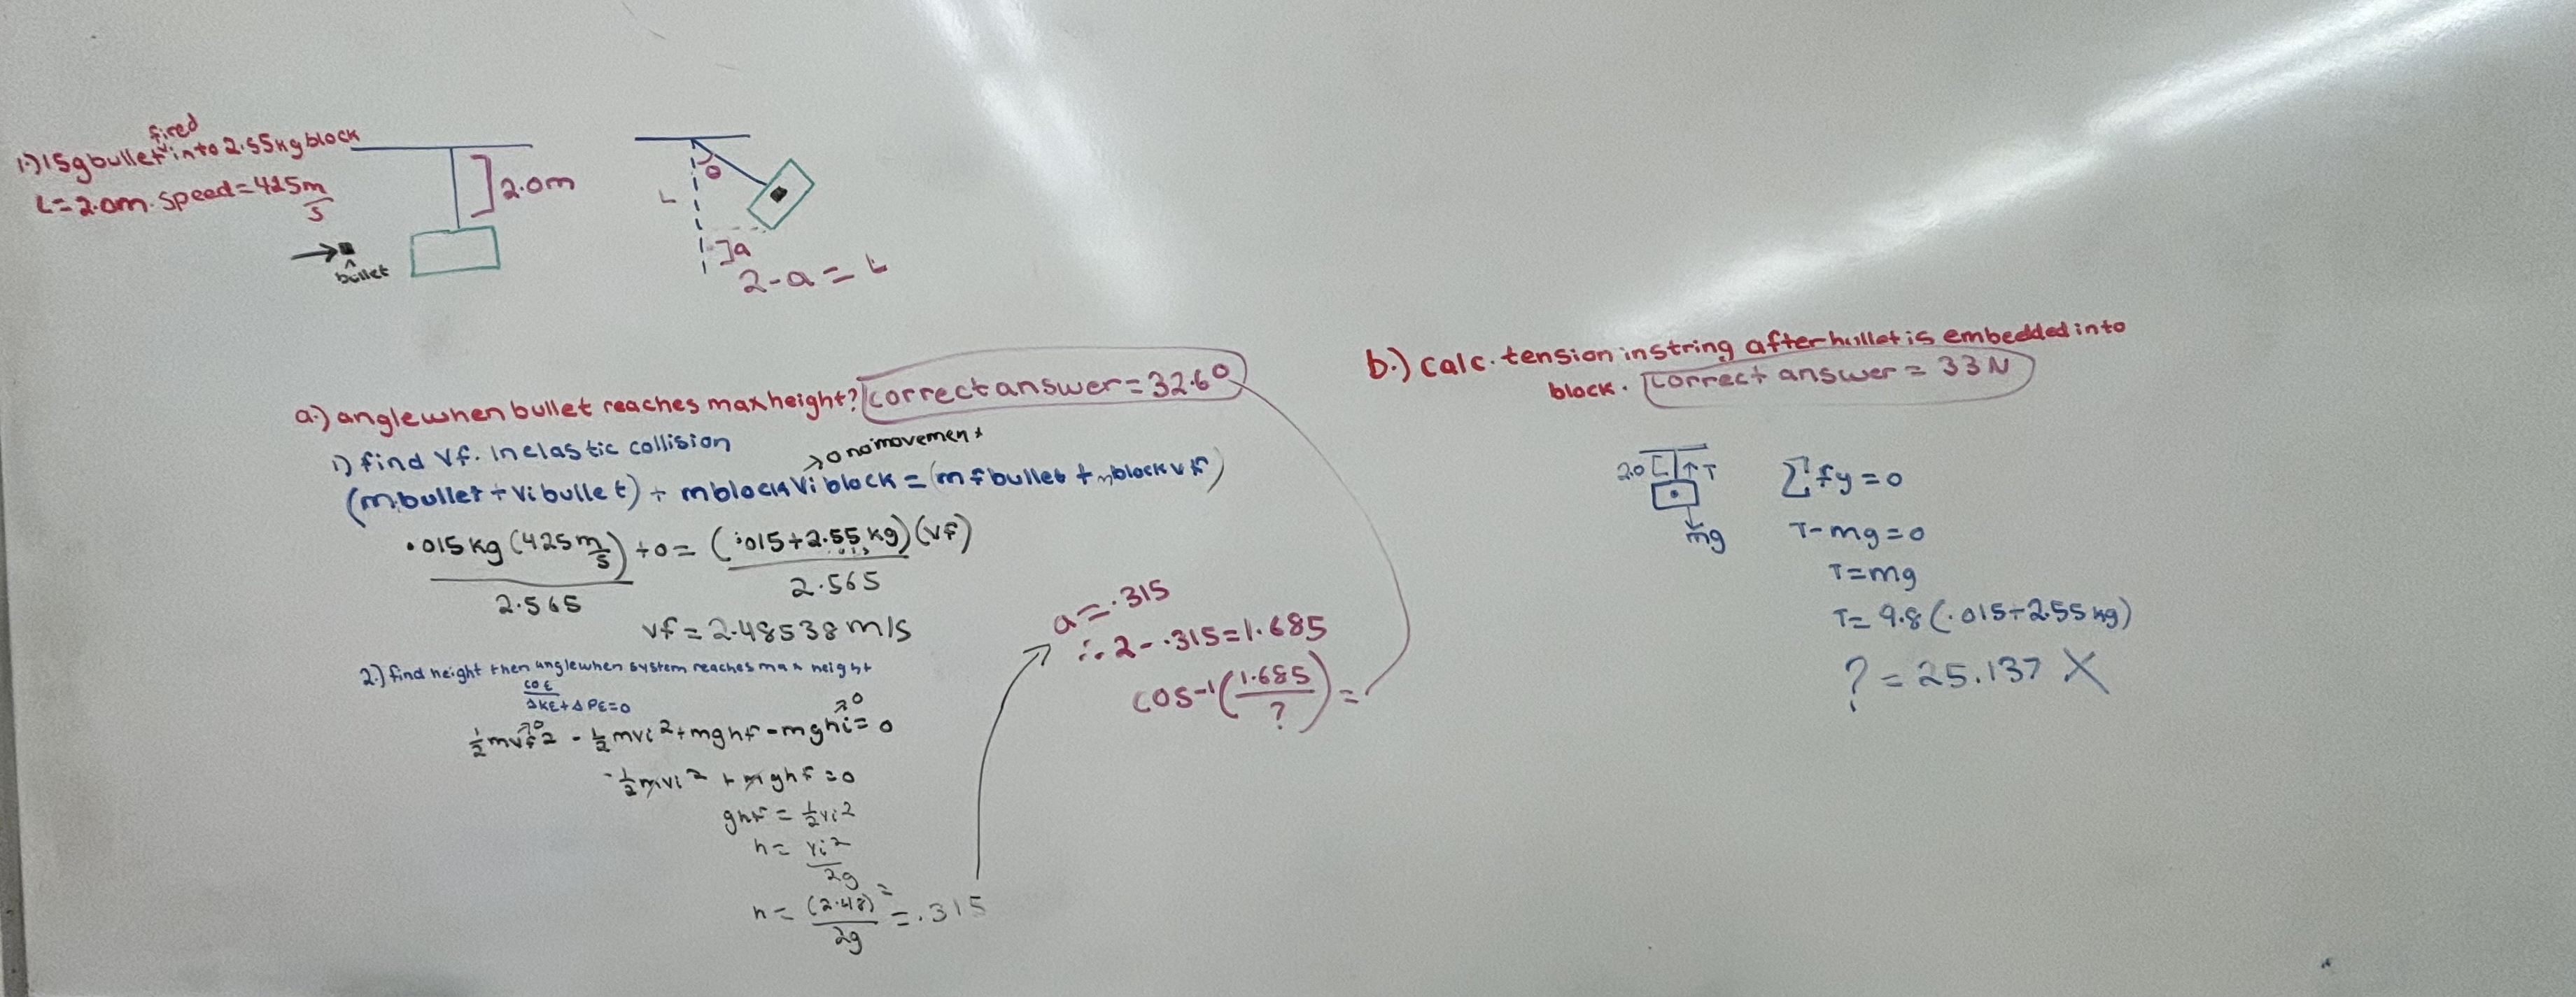 1.) 15g bullet fired into 2.55kg block
L=2.0m. speed=425 m/s
]2.0m
bullet
θ
L
]a
2-a=L
a.) angle when bullet reaches max height? correct answer=32.6°
1) find vf. Inelastic collision
→0 no movement
(mbullet+vibullet)+mblockviblock=(mfbullet+mblockvf)
.015kg(425m/s)+0=(.015+2.55kg)(vf)
2.565 2.565
vf=2.48538m/s
2.) find height then angle when system reaches max height
COE
ΔKE+ΔPE=0
→0 →0
½mvf²-½mvi²+mghf-mghi=0
-½mvi²+mghf=0
ghf=½vi²
h=vi²/2g
h=(2.48)²/2g=.315
a=.315
∴2-.315=1.685
cos⁻¹(1.685/?)=
b.) Calc. tension in string after bullet is embedded into
block. correct answer=33N
2.0[ ↑T
mg
Σfy=0
T-mg=0
T=mg
T=9.8(.015+2.55kg)
?=25.137 X